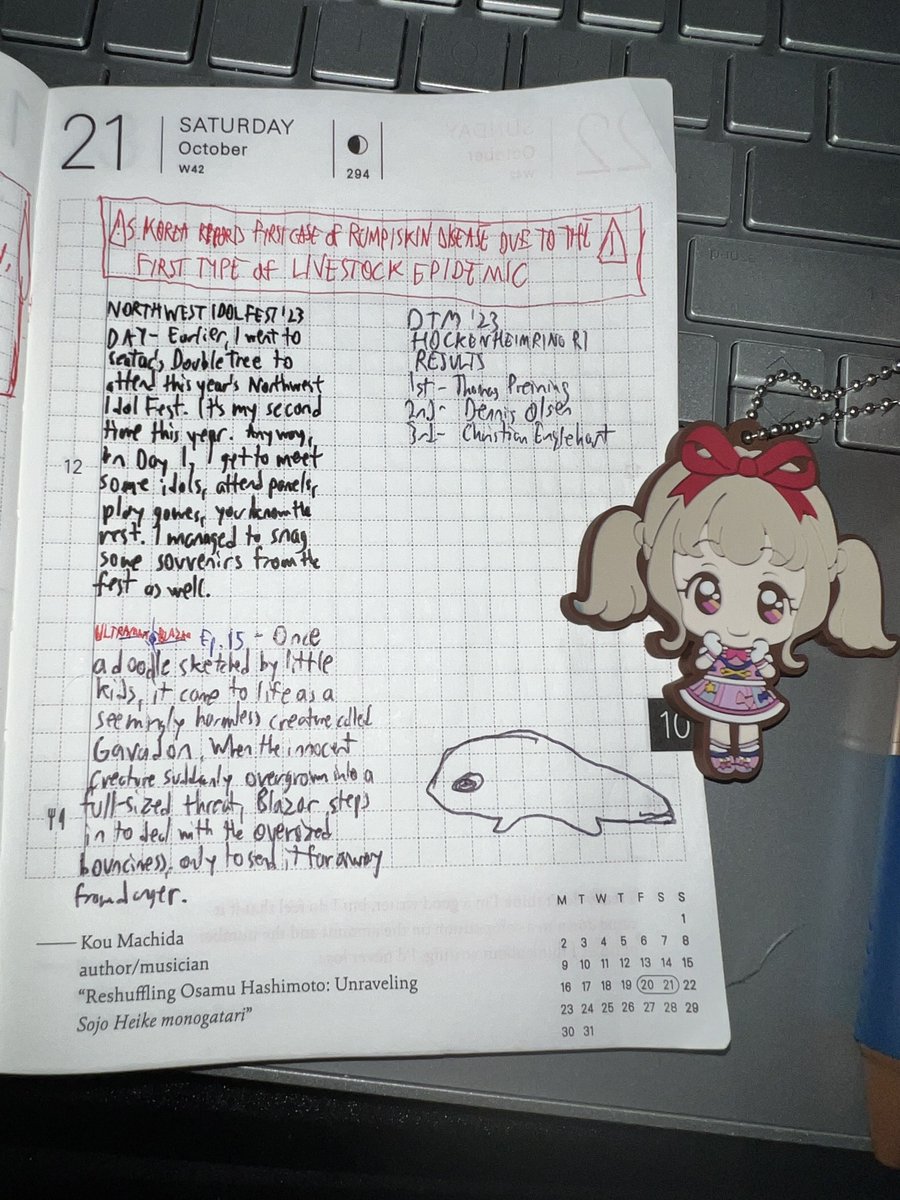 21
SATURDAY
October
W42
294
S KOREA RECORD FIRST CASE of RUMPISKIN DISEASE DUE TO THE
FIRST TYPE of LIVESTOCK EPIDEMIC
NORTHWEST IDOLFEST '23
DAY- Earlier, I went to
seatac's DoubleTree to
attend this year's Northwest
Idol Fest. It's my second
time this year. Anyway,
on Day 1, I got to meet
some idols, attend panels,
play games, you know the
rest. I managed to snag
some souvenirs from the
fest as well.
DTM '23
HOCKENHEIMRING R1
RESULTS
1st- Thomas Preining
2nd- Dennis Olsen
3rd- Christian Englehart
12
ULTRAMAN BLAZAR Ep. 15 - Once
a doodle sketched by little
kids, it came to life as a
seemingly harmless creature called
Gavadon. When the innocent
creature suddenly overgrown into a
full-sized threat, Blazar steps
in to deal with the oversized
bounciness, only to send it far away
from danger.
10
—— Kou Machida
author/musician
“Reshuffling Osamu Hashimoto: Unraveling
Sojo Heike monogatari”
M T W T F S S
1
2 3 4 5 6 7 8
9 10 11 12 13 14 15
16 17 18 19 20 21 22
23 24 25 26 27 28 29
30 31